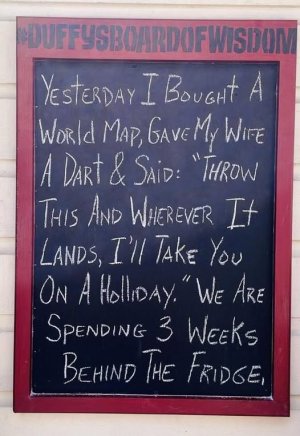 #DUFFYSBOARDOFWISDOM
YESTERDAY I BOUGHT A
WORLD MAP, GAVE MY WIFE
A DART & SAID: "THROW
THIS AND WHEREVER IT
LANDS, I'll TAKE YOU
ON A HOLLIDAY." WE ARE
SPENDING 3 WEEKS
BEHIND THE FRIDGE.